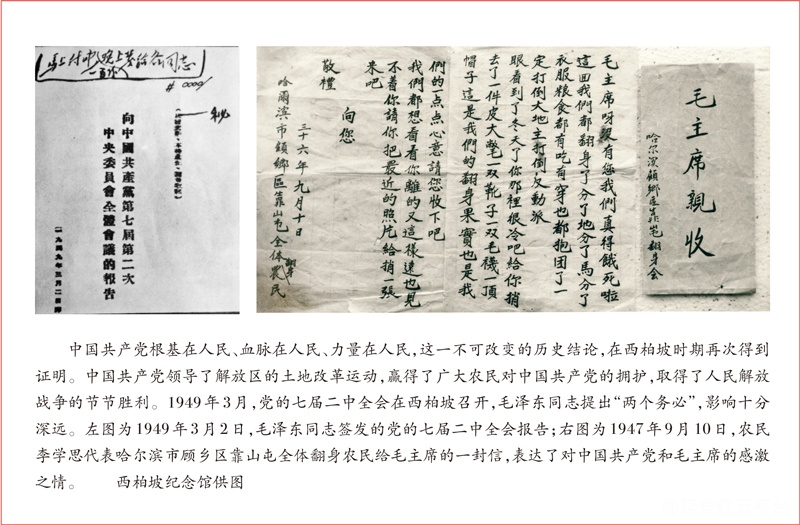 馬上付印,晚上發給各同志
一百份
向中國共產黨第七屆第二次
中央委員會全體會議的報告
一九四九年三月二日
毛主席親收
哈尔濱顧鄉區靠山屯翻身会
毛主席呀沒有您我們真得餓死啦
這回我們都翻身了分了地分了馬分了
衣服粮食都有吃有穿也都抱团了一
定打倒大地主打倒反动派
眼看到了冬天了你那裡很冷吧給你捎
去了一件皮大氅一双靴子一双毛襪一頂
帽子這是我們的翻身果实也是我
們的一点点心意請您收下吧
我們都想看看你離的又這樣遠也見
不着你請你把最近的照片給捎一張
來吧
向您
敬禮
三十六年九月十日
哈爾濱市顧鄉區靠山屯全体翻身農民
中国共产党根基在人民、血脉在人民、力量在人民,这一不可改变的历史结论,在西柏坡时期再次得到
证明。中国共产党领导了解放区的土地改革运动,赢得了广大农民对中国共产党的拥护,取得了人民解放
战争的节节胜利。1949年3月,党的七届二中全会在西柏坡召开,毛泽东同志提出“两个务必”,影响十分
深远。左图为1949年3月2日,毛泽东同志签发的党的七届二中全会报告;右图为1947年9月10日,农民
李学思代表哈尔滨市顾乡区靠山屯全体翻身农民给毛主席的一封信,表达了对中国共产党和毛主席的感激
之情。 西柏坡纪念馆供图